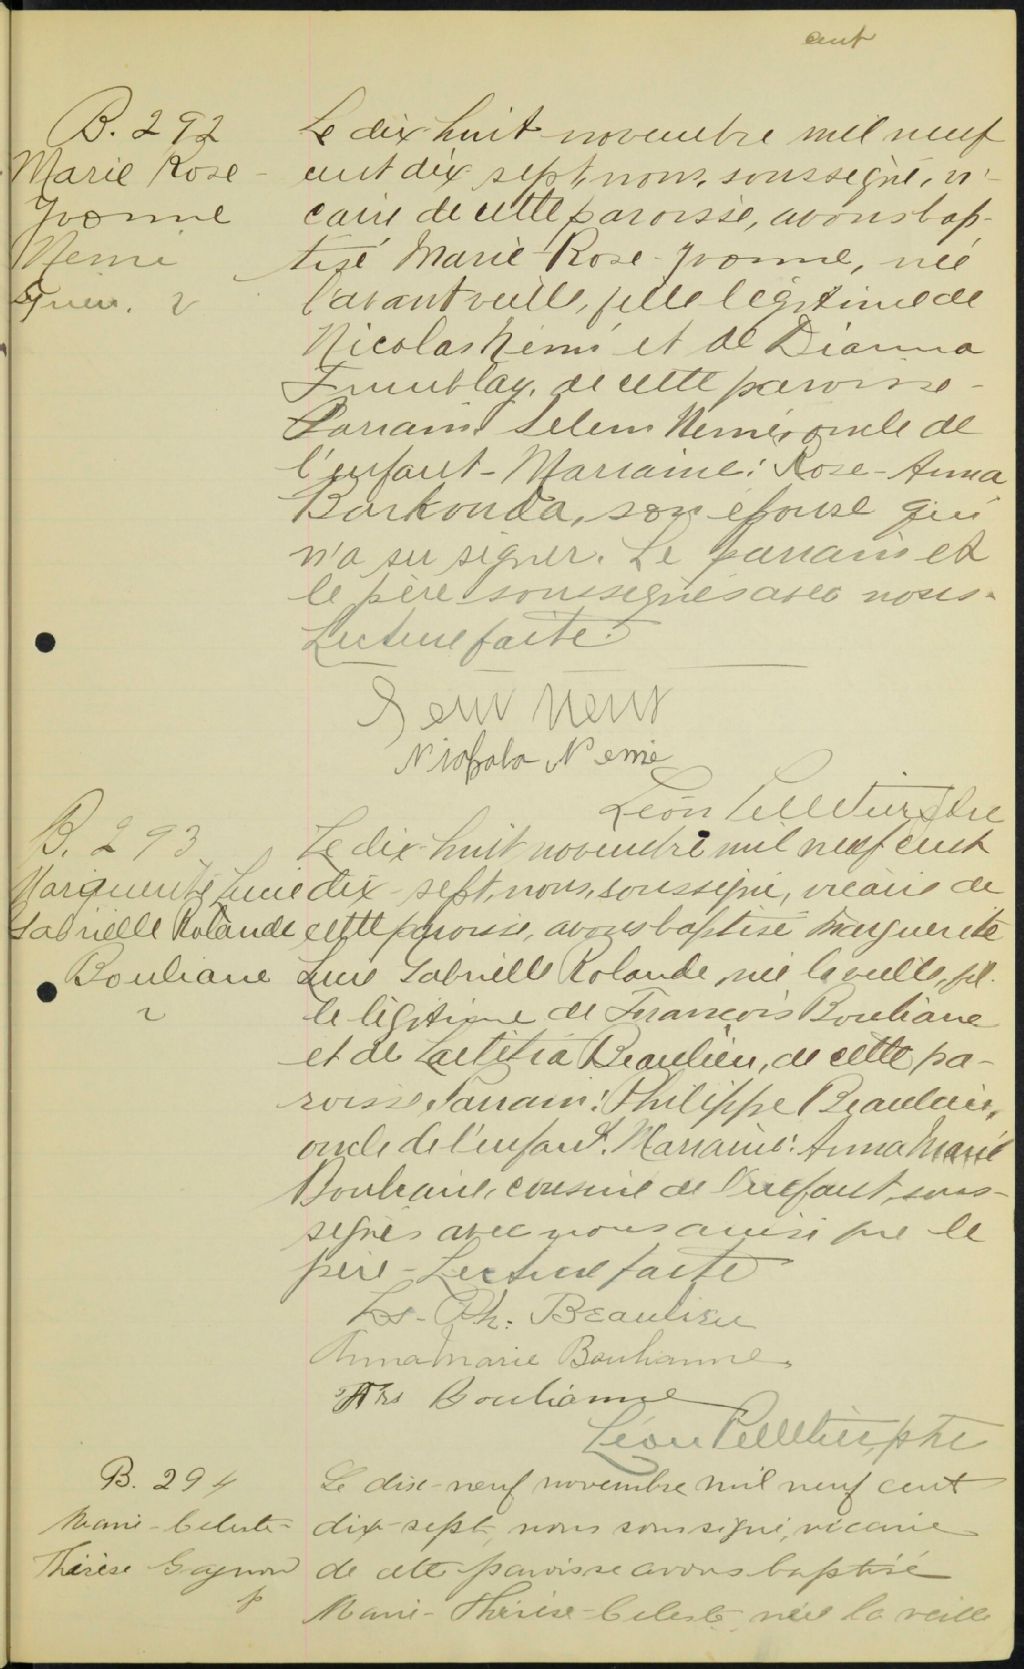 cent
B. 292
Marie Rose-
Yvonne
Nemi
2
Le dix-huit novembre mil neuf
cent dix sept, nous, soussigné, vi-
caire de cette paroisse, avons bap-
tisé Marie-Rose-Yvonne, née
l'avant veille, fille légitime de
Nicolas Némi et de Dianna
Tremblay, de cette paroisse-
Parrain Selem Nemi, oncle de
l'enfant- Marraine: Rose-Anna
Barkouda, son épouse qui
n'a su signer. Le parrain et
le père soussignés avec nous-
Lecture faite.
Nemie
Léon Pelletier, ptre
B. 293
Marguerite Lucie
Gabrielle Rolande
Bouliane
2
Le dix-huit novembre mil neuf cent
dix-sept, nous, soussigné, vicaire de
cette paroisse, avons baptisé Marguerite
Lucie Gabrielle Rolande, née la veille, fil-
le légitime de François Bouliane
et de Laetitia Beaulieu, de cette pa-
roisse. Parrain: Philippe Beaulieu,
oncle de l'enfant. Marraine: Anna Marie
Bouliane, cousine de l'enfant, sous-
signés avec nous ainsi que le
père- Lecture faite
Ls-Ph. Beaulieu
Anna Marie Boulianne.
Frs Boulianne
Léon Pelletier, ptre
B. 294
Marie-Celeste-
Thérèse Gagnon
p
Le dix-neuf novembre mil neuf cent
dix-sept, nous soussigné, vicaire
de cette paroisse avons baptisé
Marie-Thérèse-Celeste, née la veille